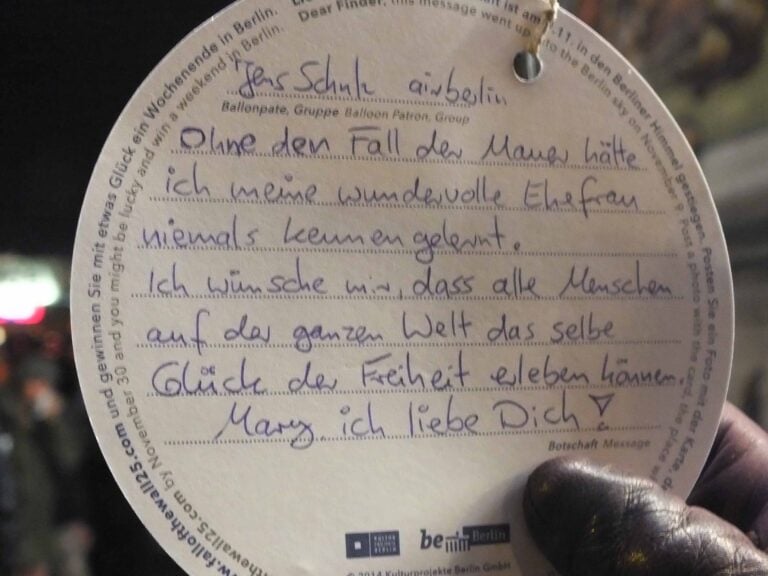 Dear Finder, this message went up into the Berlin sky on November 9. Post a photo with the card, the place
ist am 9.11. in den Berliner Himmel gestiegen. Posten Sie ein Foto mit der Karte,
www.falloftthewall25.com und gewinnen Sie mit etwas Glück ein Wochenende in Berlin.
www.fallofthewall25.com by November 30 and you might be lucky and win a weekend in Berlin.
Jens Schulz airberlin
Ballonpate, Gruppe Balloon Patron, Group
Ohne den Fall der Mauer hätte
ich meine wundervolle Ehefrau
niemals kennengelernt.
Ich wünsche mir, dass alle Menschen
auf der ganzen Welt das selbe
Glück der Freiheit erleben können.
Mary ich liebe Dich!
Botschaft Message
KULTUR PROJEKTE BERLIN
be Berlin
© 2014 Kulturprojekte Berlin GmbH